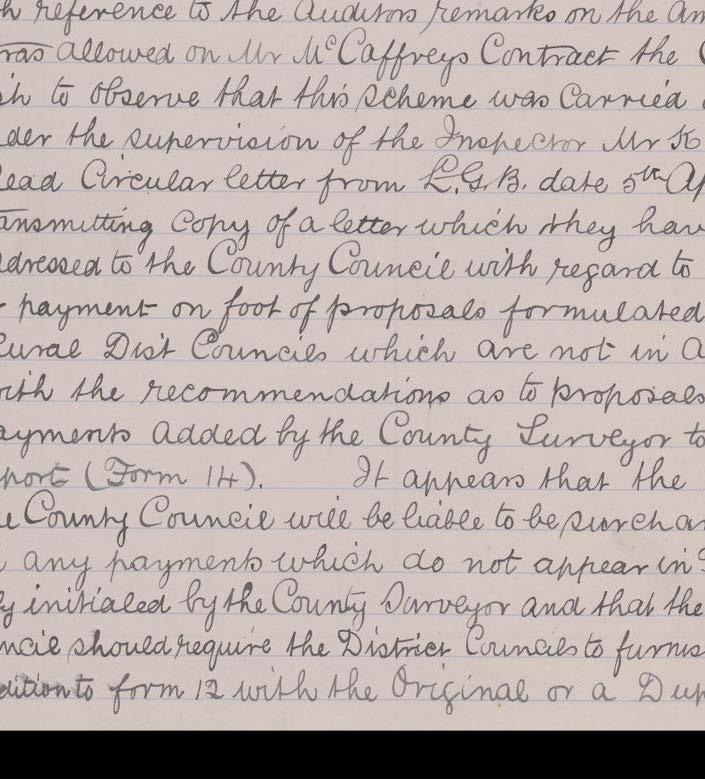 h reference to the Auditors remarks on the Am
was allowed on Mr McCaffreys Contract the
sh to observe that this scheme was Carried
der the supervision of the Inspector Mr K
ead Circular letter from L.G.B. date 5th Ap
ansmitting Copy of a letter which they hav
ddressed to the County Council with regard to
payment on foot of proposals formulated
Rural Dist Councils which are not in a
with the recommendations as to proposals
ayments added by the County Surveyor to
port (Form 14). It appears that the
e County Council will be liable to be surchar
any payments which do not appear in
y initialed by the County Surveyor and that the
ncil should require the District Councils to furnis
dition to form 12 with the Original or a Dup